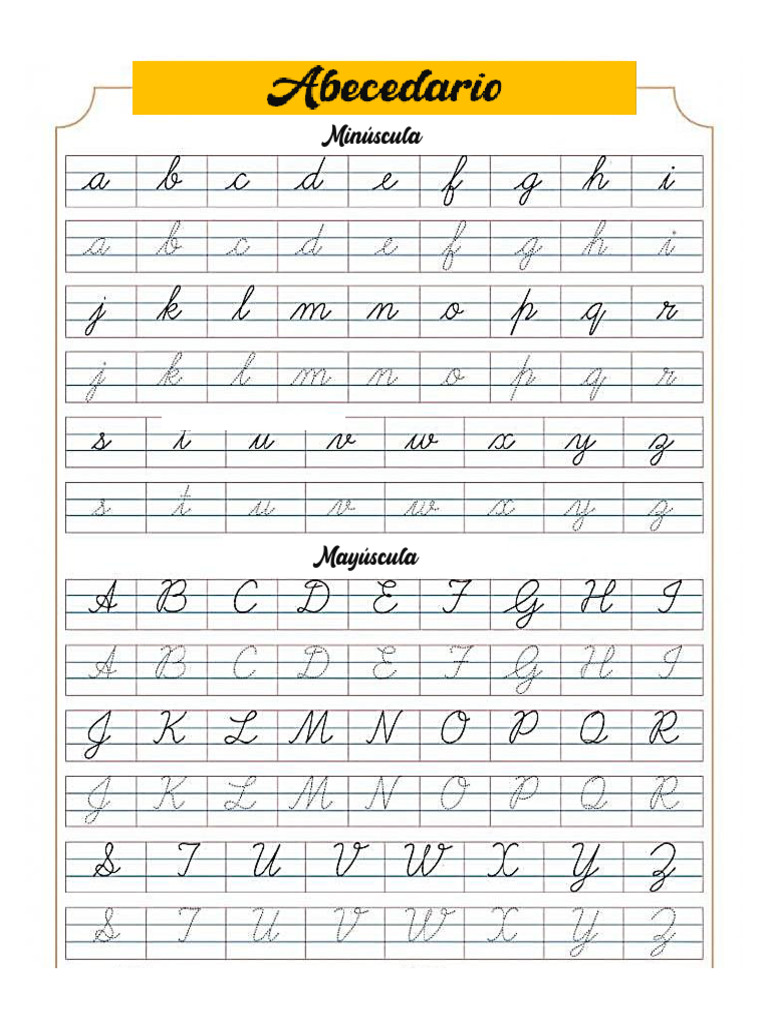 Abecedario
Minúscula
a b c d e f g h i
a b c d e f g h i
j k l m n o p q r
j k l m n o p q r
s t u v w x y z
s t u v w x y z
Mayúscula
A B C D E F G H I
A B C D E F G H I
J K L M N O P Q R
J K L M N O P Q R
S T U V W X Y Z
S T U V W X Y Z